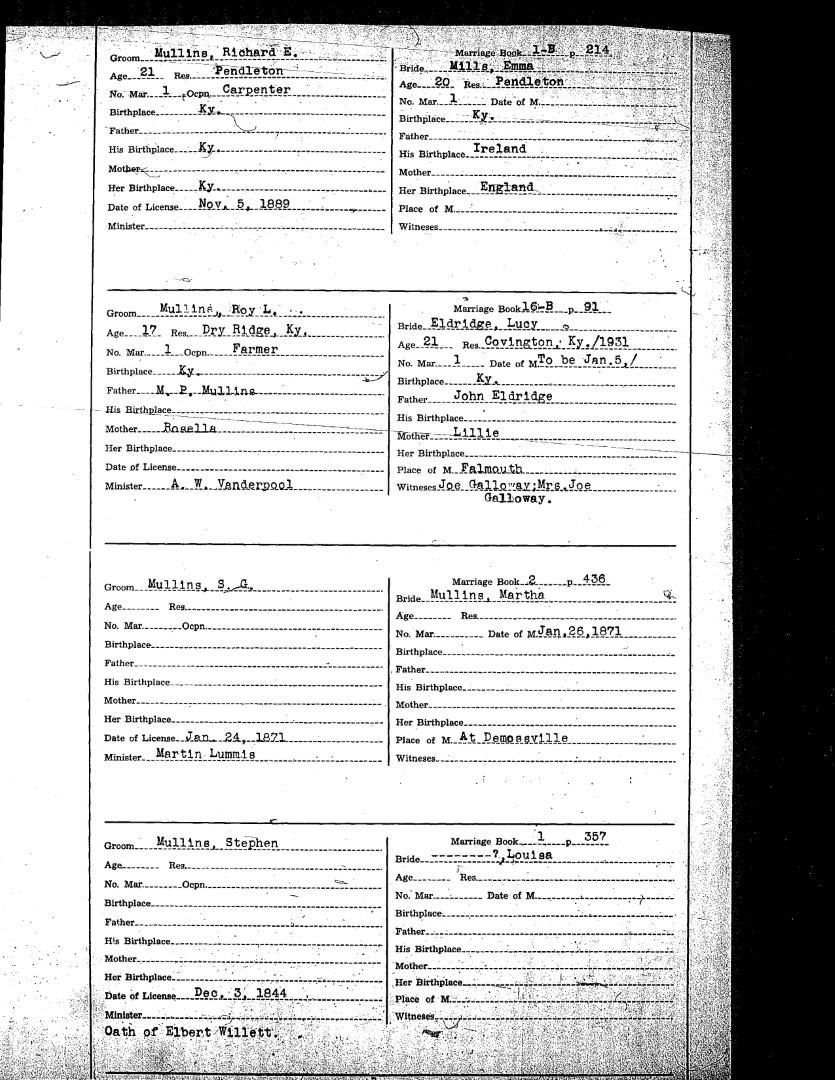 Groom Mullins, Richard E.
Age 21 Res. Pendleton
No. Mar. 1 Ocpn. Carpenter
Birthplace Ky.
Father
His Birthplace Ky.
Mother
Her Birthplace Ky.
Date of License Nov. 5, 1889
Minister
Marriage Book 1-B p. 214
Bride Mills, Emma
Age 20 Res. Pendleton
No. Mar. 1 Date of M.
Birthplace Ky.
Father
His Birthplace Ireland
Mother
Her Birthplace England
Place of M.
Witnesses
Groom Mullins, Roy L.
Age 17 Res. Dry Ridge, Ky.
No. Mar. 1 Ocpn. Farmer
Birthplace Ky.
Father M. P. Mullins
His Birthplace
Mother Rosella
Her Birthplace
Date of License
Minister A. W. Vanderpool
Marriage Book 16-B p. 91
Bride Eldridge, Lucy
Age 21 Res. Covington, Ky./1931
No. Mar. 1 Date of M. To be Jan.5,/
Birthplace Ky.
Father John Eldridge
His Birthplace
Mother Lillie
Her Birthplace
Place of M. Falmouth
Witneses Joe Galloway;Mrs.Joe
Galloway.
Groom Mullins, S. G.
Age Res.
No. Mar. Ocpn.
Birthplace
Father
His Birthplace
Mother
Her Birthplace
Date of License Jan. 24, 1871
Minister Martin Lummis
Marriage Book 2 p. 436
Bride Mullins, Martha
Age Res.
No. Mar. Date of M. Jan.26,1871
Birthplace
Father
His Birthplace
Mother
Her Birthplace
Place of M. At Demossville
Witneses
Groom Mullins, Stephen
Age Res.
No. Mar. Ocpn.
Birthplace
Father
His Birthplace
Mother
Her Birthplace
Date of License Dec. 3, 1844
Minister
Oath of Elbert Willett.
Marriage Book 1 p. 357
Bride --------?,Louisa
Age Res.
No. Mar. Date of M.
Birthplace
Father
His Birthplace
Mother
Her Birthplace
Place of M.
Witneses